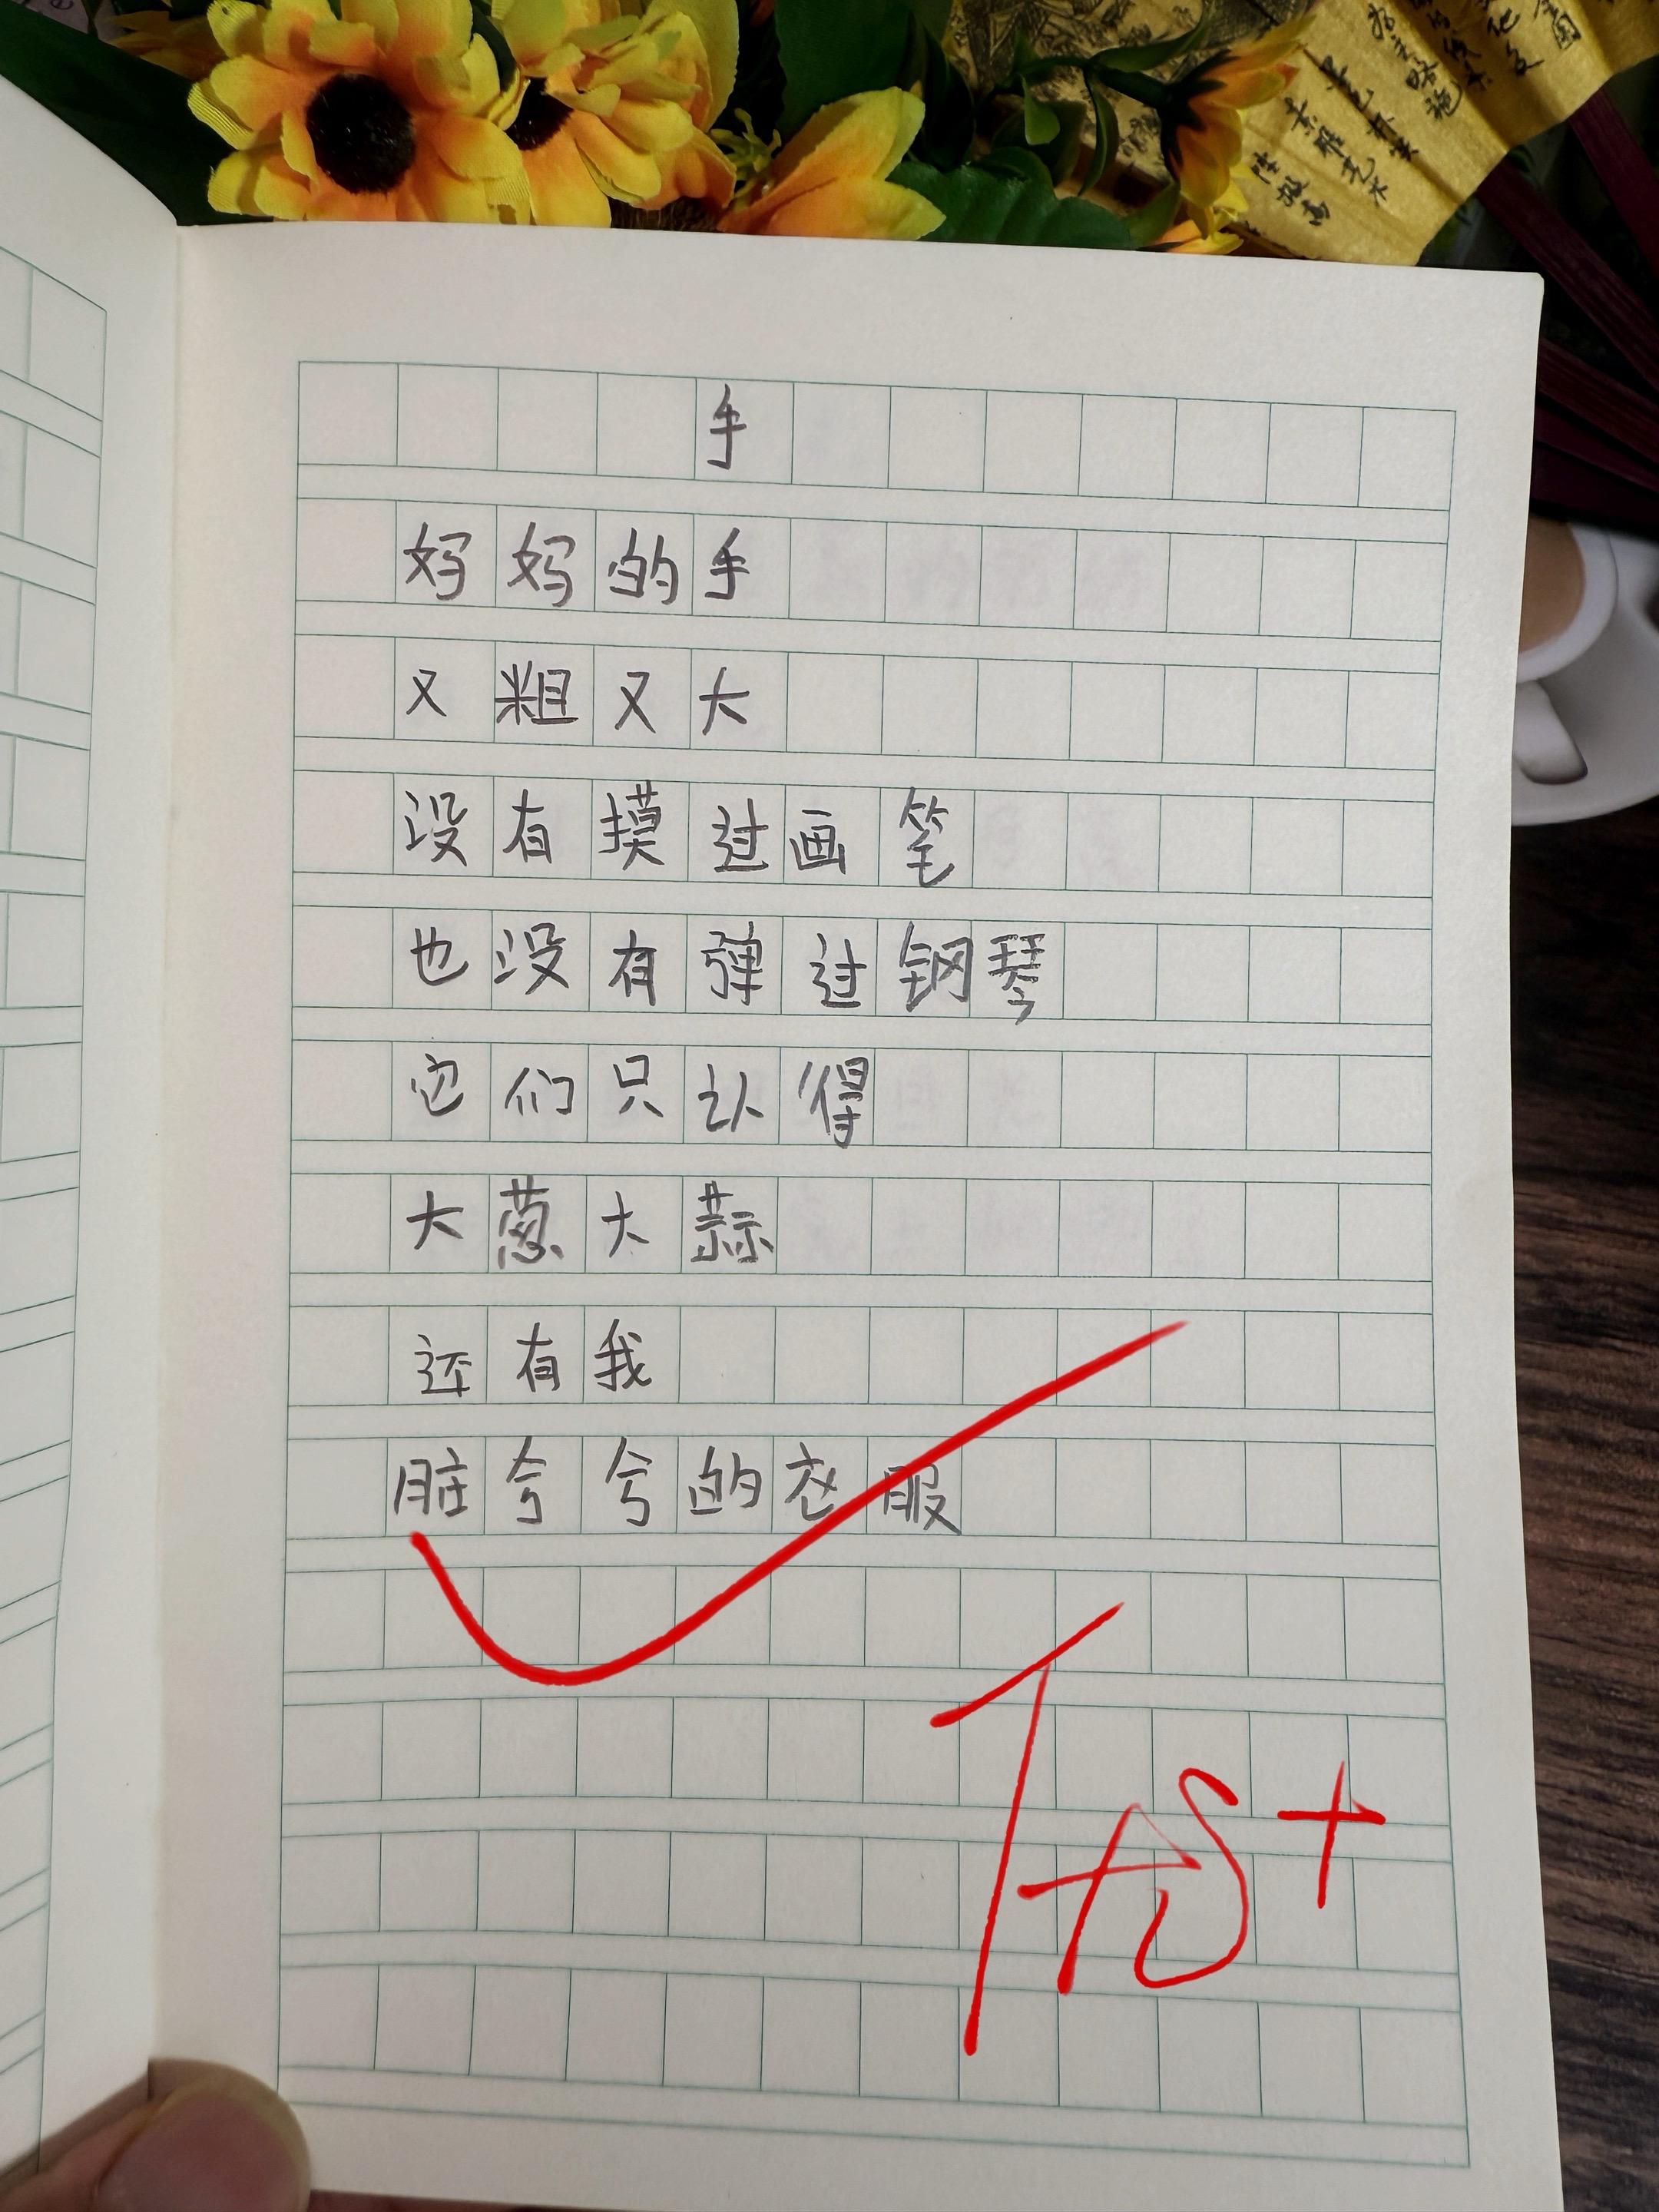 手
妈妈的手
又粗又大
没有摸过画笔
也没有弹过钢琴
它们只认得
大葱大蒜
还有我
脏兮兮的衣服